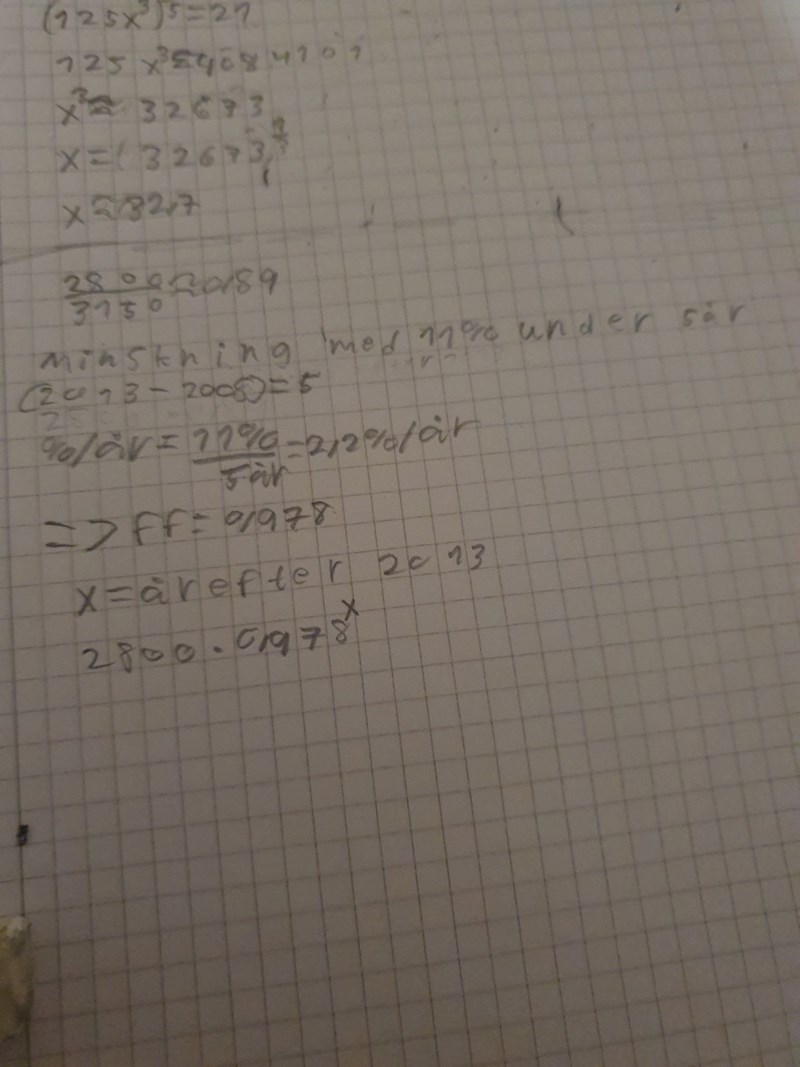 (125x³)⁵=21
125x³≈4084101
x³≈32673
x=(32673)
x≈32,7
2800/3150≈0,89
minskning med 11% under 5år
(2013-2008)=5
%/år=11%/5år=2,2%/år
=>ff=0,978
x=år efter 2013
2800·0,978ˣ